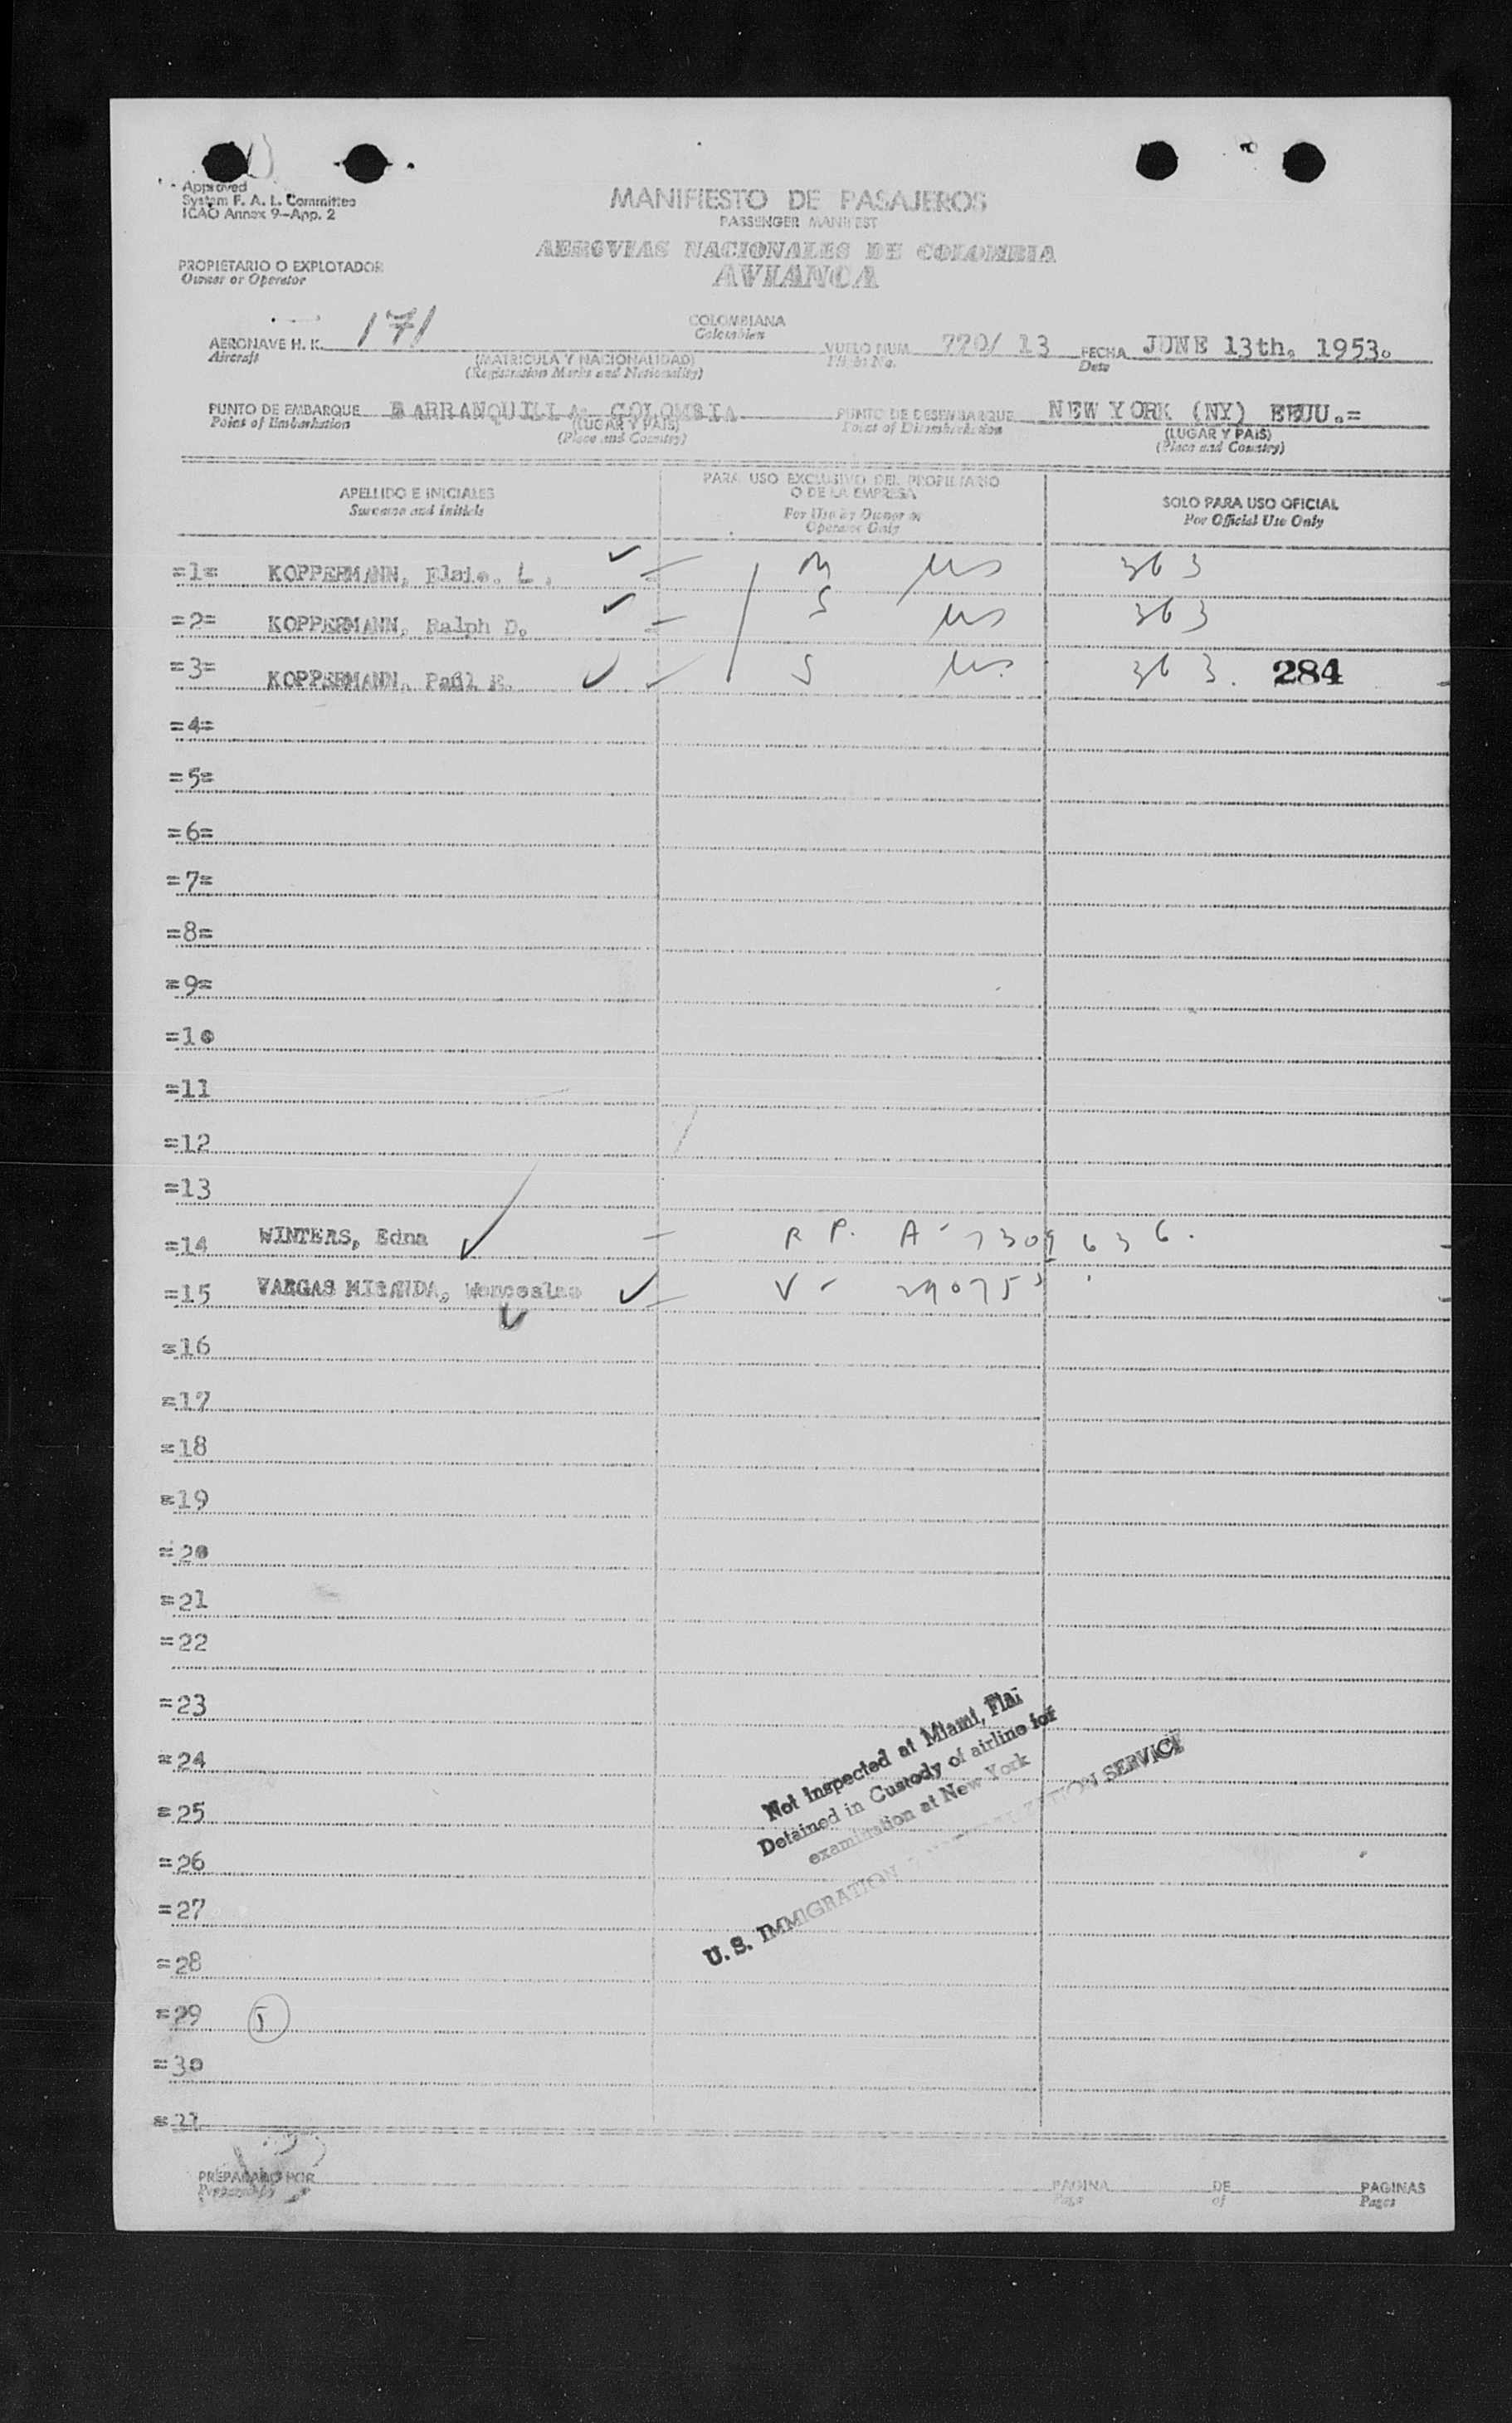 Approved
System F. A. L. Committee
ICAO Annex 9-App. 2
MANIFIESTO DE PASAJEROS
PASSENGER MANIFEST
AEROVIAS NACIONALES DE COLOMBIA
AVIANCA
PROPIETARIO O EXPLOTADOR
Owner or Operator
AERONAVE H. K. 171
Aircraft
COLOMBIANA
Colombian
(MATRICULA Y NACIONALIDAD)
(Registration Marks and Nationality)
VUELO NUM. 770/ 13
Flight No.
FECHA JUNE 13th. 1953.
Date
PUNTO DE EMBARQUE BARRANQUILLA- COLOMBIA
Point of Embarkation
(LUGAR Y PAIS)
(Place and Country)
PUNTO DE DESEMBARQUE NEW YORK (NY) EEUU.=
Point of Disembarkation
(LUGAR Y PAIS)
(Place and Country)
APELLIDO E INICIALES
Surname and initials
PARA USO EXCLUSIVO DEL PROPIETARIO
O DE LA EMPRESA
For Use by Owner or
Operator Only
SOLO PARA USO OFICIAL
For Official Use Only
=1= KOPPERMANN, L. M US 363
=2= KOPPERMANN, Ralph D. S US 363
=3= KOPPERMANN, Paßl R. S US. 363. 284
=4=
=5=
=6=
=7=
=8=
=9=
=10
=11
=12
=13
=14 WINTERS, Edna R P. A- 7309636.
=15 VARGAS MIRANDA, V- 290753
=16
=17
=18
=19
=20
=21
=22
=23
=24
=25
=26
=27
=28
=29 5
=30
Not Inspected at Miami, Fla.
Detained in Custody of airline for
examination at New York
U. S. IMMIGRATION NATURALIZATION SERVICE
PREPARADO POR
Prepared by
PAGINA DE PAGINAS
Page of Pages